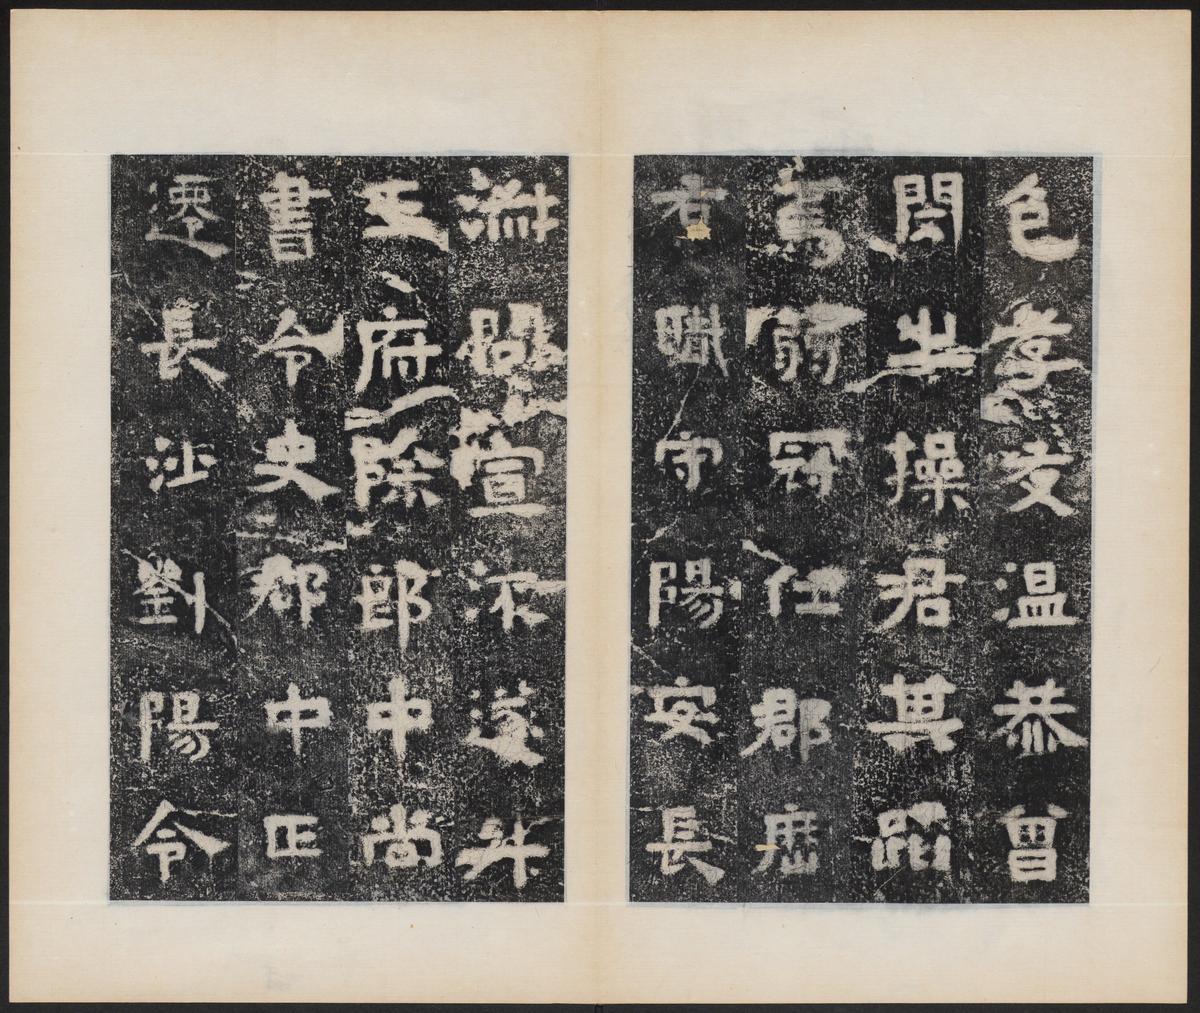 色孝友温恭曾
閔之操君其蹈
焉弱冠仕郡歷
右職守陽安長
流聞宣遂升
王府除郎中尚
書令史郡中正
遷長沙劉陽令